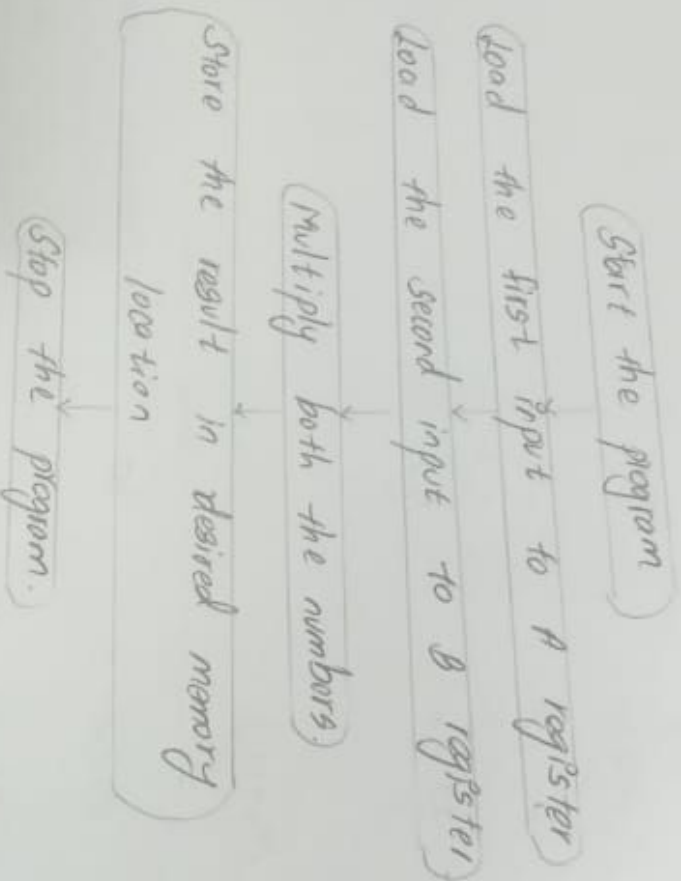 Start the program
Load the first input to A register
Load the second input to B register
Multiply both the numbers.
Store the result in desired memory
location
Stop the program.